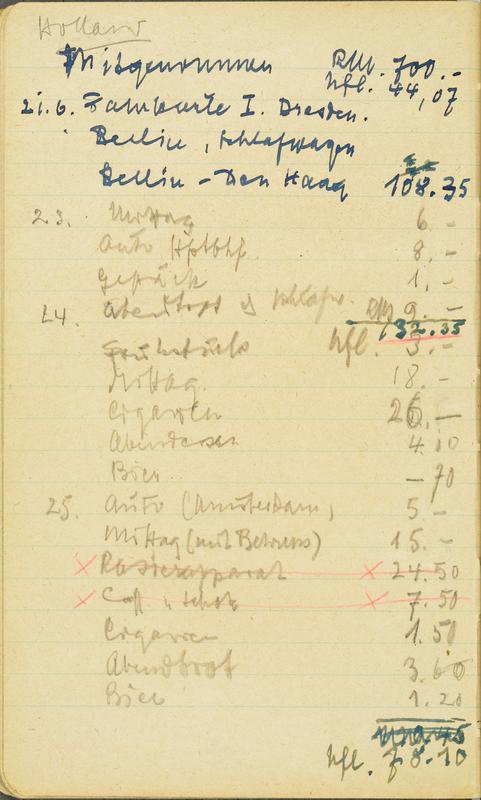 Holland
Mitgenommen RM. 700.-
hfl. 44,07
21.6. Fahrkarte I. Dresden.
Berlin, Schlafwagen
Berlin - Den Haag 108.35
23. Mittag 6.-
Auto Hptbhf. 8.-
Gepäck 1.-
24. Abendbrot Schlafw. RM 9.-
132.35
Frühstück hfl. 3.-
Mittag. 18.-
Cigarren 26.-
Abendessen 4.10
Bier -70
25. Auto (Amsterdam) 5-
Mittag (mit Behrens) 15.-
Rasierapparat 24.50
Caff 7.50
Cigarren 1.50
Abendbrot 3.60
Bier 1.20
hfl. 78.10